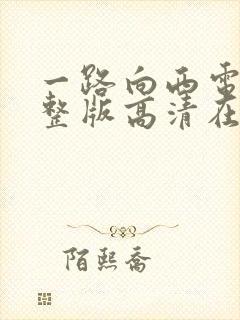 一路向西电
整版高清在
陌熙乔